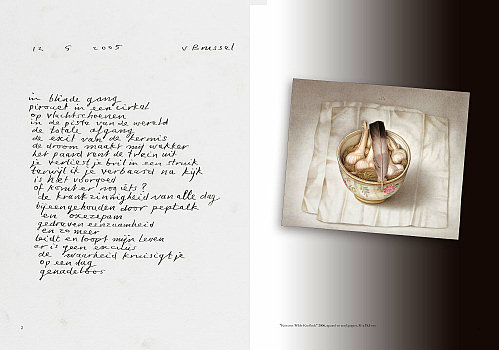 12 5 2005 v Brussel
in blinde gang
pirouet in een cirkel
op vluchtschoenen
in de piste van de wereld
de totale afgang
de exit van de kermis
de droom maakt mij wakker
het paard rent de trein uit
je verliest je bril in een struik
terwijl ik je verbaasd na kijk
is het voorgoed
of komt er nog iets?
de krankzinnigheid van alle dag
bijeengehouden door peptalk
en oxezepam
gedreven eenzaamheid
en zo meer
leidt en loopt mijn leven
er is geen excuus
de waarheid kruisigt je
op een dag
genadeloos
2